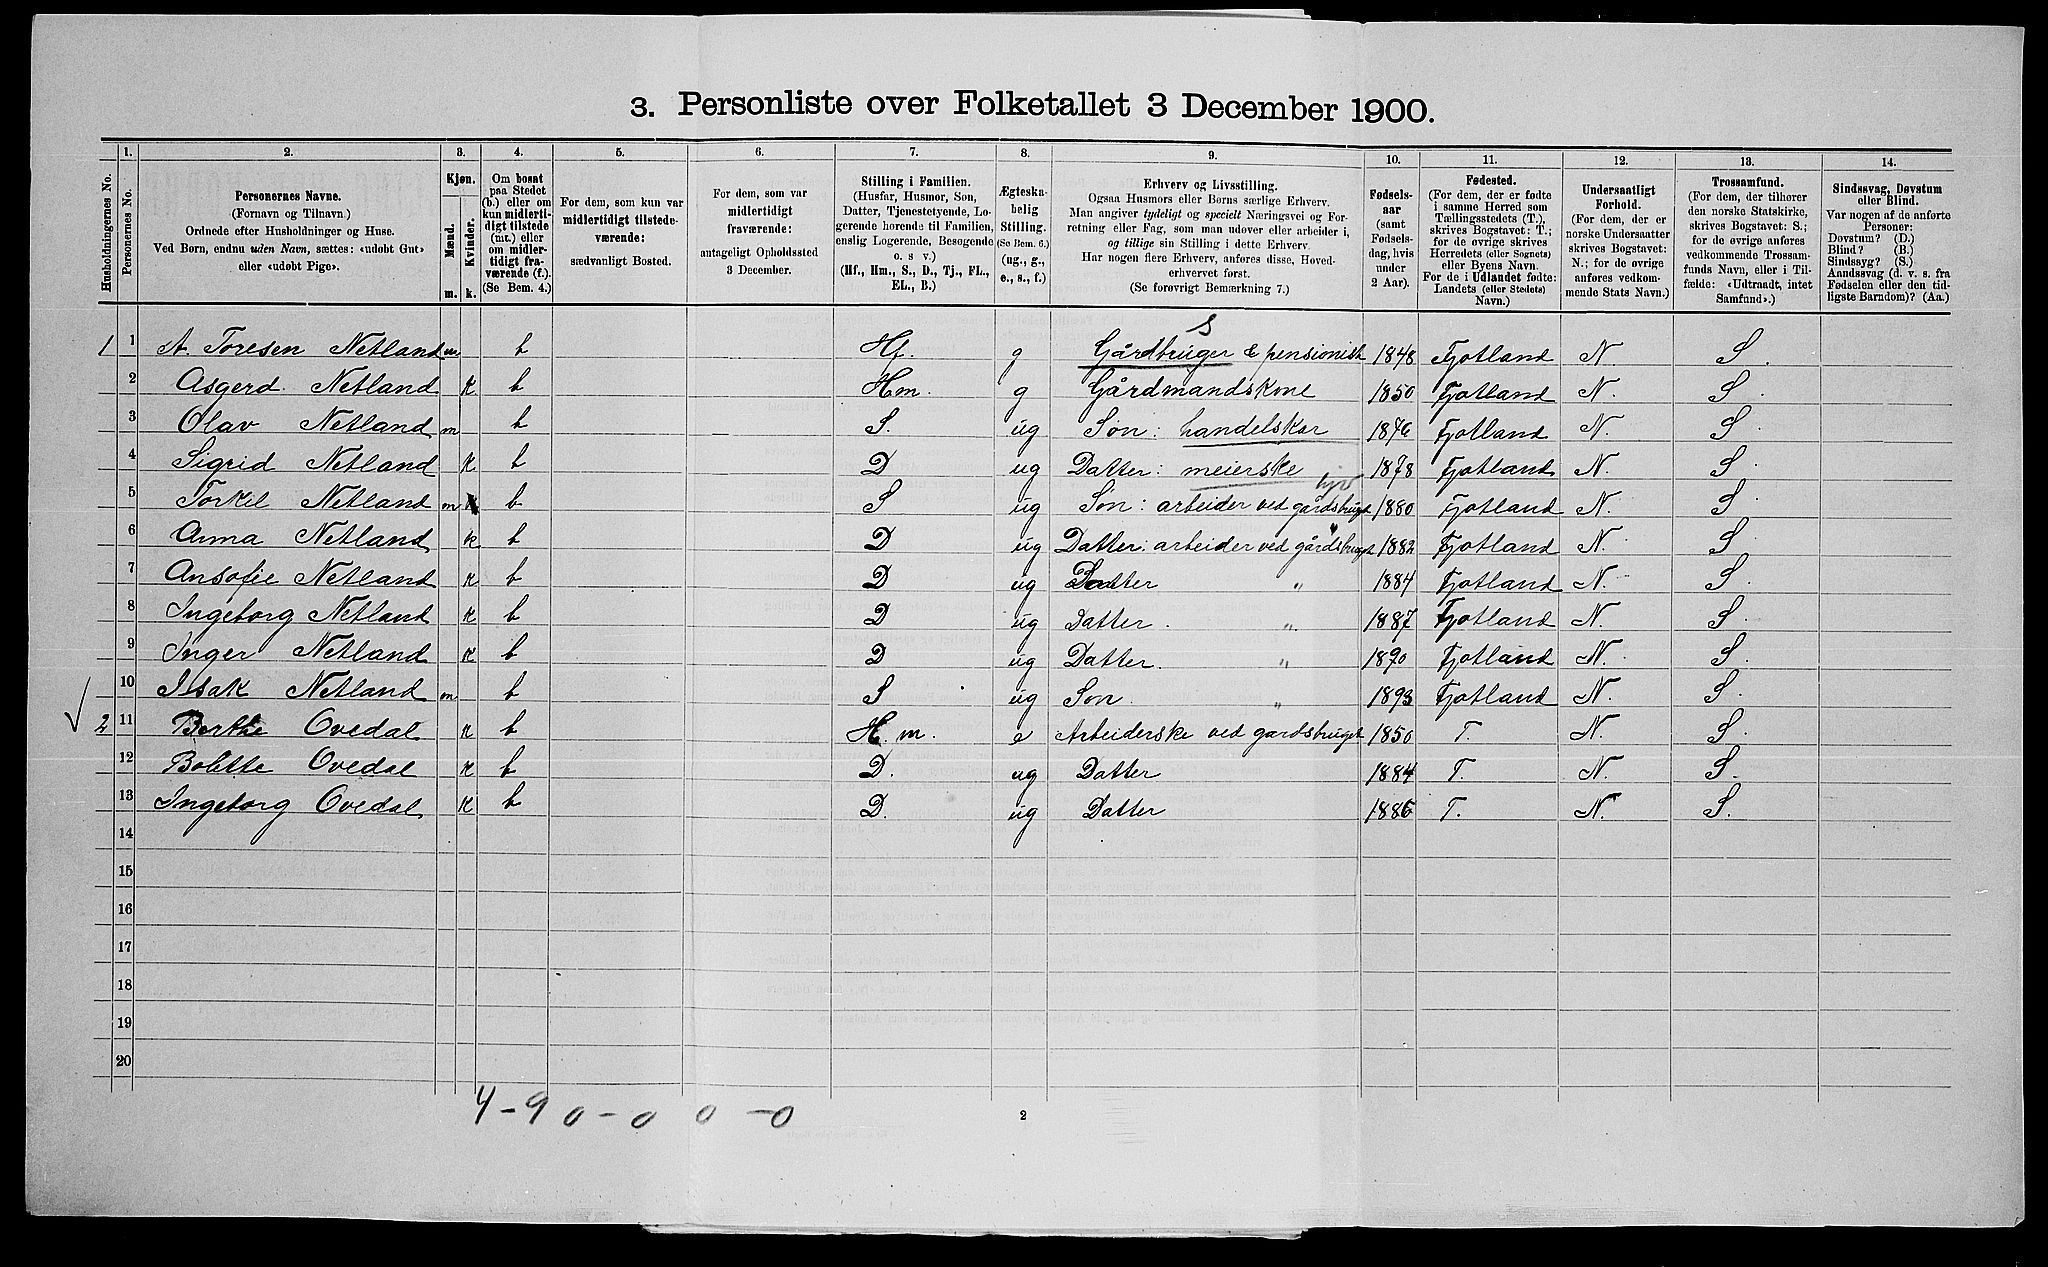 3. Personliste over Folketallet 3 December 1900.
Husholdningernes No.
1. Personernes No.
2. Personernes Navne.
(Fornavn og Tilnavn.)
Ordnede efter Husholdninger og Huse.
Ved Børn, endnu uden Navn, sættes: «udøbt Gut»
eller «udøbt Pige».
3. Kjøn.
Mænd. m.
Kvinder. k.
4. Om bosat
paa Stedet
(b.) eller om
kun midlerti-
digt tilstede
(mt.) eller
om midler-
tidigt fra-
værende (f.).
(Se Bem. 4.)
5. For dem, som kun var
midlertidigt tilstede-
værende:
sædvanligt Bosted.
6. For dem, som var
midlertidigt
fraværende:
antageligt Opholdssted
3 December.
7. Stilling i Familien.
(Husfar, Husmor, Søn,
Datter, Tjenestetyende, Lo-
gerende hørende til Familien,
enslig Logerende, Besøgende
o. s v.)
(Hf., Hm., S., D., Tj., FL.,
EL., B.)
8. Ægteska-
belig
Stilling.
(Se Bem. 6.)
(ug., g.,
e., s., f.)
9. Erhverv og Livsstilling.
Ogsaa Husmors eller Børns særlige Erhverv.
Man angiver tydeligt og specielt Næringsvei og For-
retning eller Fag, som man udøver eller arbeider i,
og tillige sin Stilling i dette Erhverv.
Har nogen flere Erhverv, anføres disse, Hoved-
erhvervet først.
(Se forøvrigt Bemærkning 7.)
10. Fødsels-
aar
(samt
Fødsels-
dag, hvis
under
2 Aar).
11. Fødested.
(For dem, der er fødte
i samme Herred som
Tællingsstedets (T.),
skrives Bogstavet: T.;
for de øvrige skrives
Herredets (eller Sognets)
eller Byens Navn.
For de i Udlandet fødte:
Landets (eller Stedets)
Navn.)
12. Undersaatligt
Forhold.
(For dem, der er
norske Undersaatter
skrives Bogstavet:
N.; for de øvrige
anføres vedkom-
mende Stats Navn.)
13. Trossamfund.
(For dem, der tilhører
den norske Statskirke,
skrives Bogstavet: S.;
for de øvrige anføres
vedkommende Trossam-
funds Navn, eller i Til-
fælde: «Udtraadt, intet
Samfund».)
14. Sindssvag, Døvstum
eller Blind.
Var nogen af de anførte
Personer:
Døvstum? (D.)
Blind? (B.)
Sindssyg? (S.)
Aandssvag (d. v. s. fra
Fødselen eller den tid-
ligste Barndom)? (Aa.)
S
1 1 A. Toresen Netland m b Hf. g Gårdbruger & pensionist 1848 Fjotland N S.
2 Asgerd. Netland k b Hm. g Gårdmandskone 1850 Fjotland N. S.
3 Olav Netland m b S. ug Søn: handelskar 1876 Fjotland N. S
4 Sigrid Netland k b D ug Datter: meierske 1878 Fjotland N. S
5 Torkil Netland m b S ug Søn: arbeider ved gårdsbruget 1880 Fjotland N. S
6 Anna Netland k b D ug Datter: arbeider ved gårdsbruget 1882 Fjotland N. S
7 Ansofie Netland k b D ug Datter " 1884 Fjotland N. S.
8 Ingeborg Netland k b D ug Datter. " 1887 Fjotland N. S.
9 Inger Netland k b D ug Datter. " 1890 Fjotland N. S.
10 Isak Netland m b S ug Søn. " 1893 Fjotland N. S.
2 11 Berthe Ovedal k b H.m. e Arbeiderske ved gardsbruget 1850 T. N. S.
12 Bolette Ovedal k b D. ug Datter 1884 T. N. S.
13 Ingeborg Ovedal k b D. ug Datter 1886 T. N. S.
14
15
16
17
18
19
20
4 - 9 0 - 0 0 - 0
2